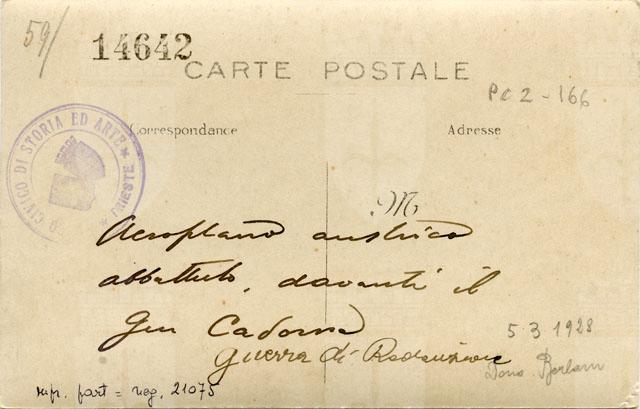 59/
14642
CARTE POSTALE
PC2-166
Correspondance
Adresse
CIVICO DI STORIA ED ARTE * TRIESTE *
M
Aeroplano austriaco
abbattuto, davanti il
Gen Cadorna
Guerra di Redenzione
5.3.1928
Dono Berlam
rip. fart = neg. 21075